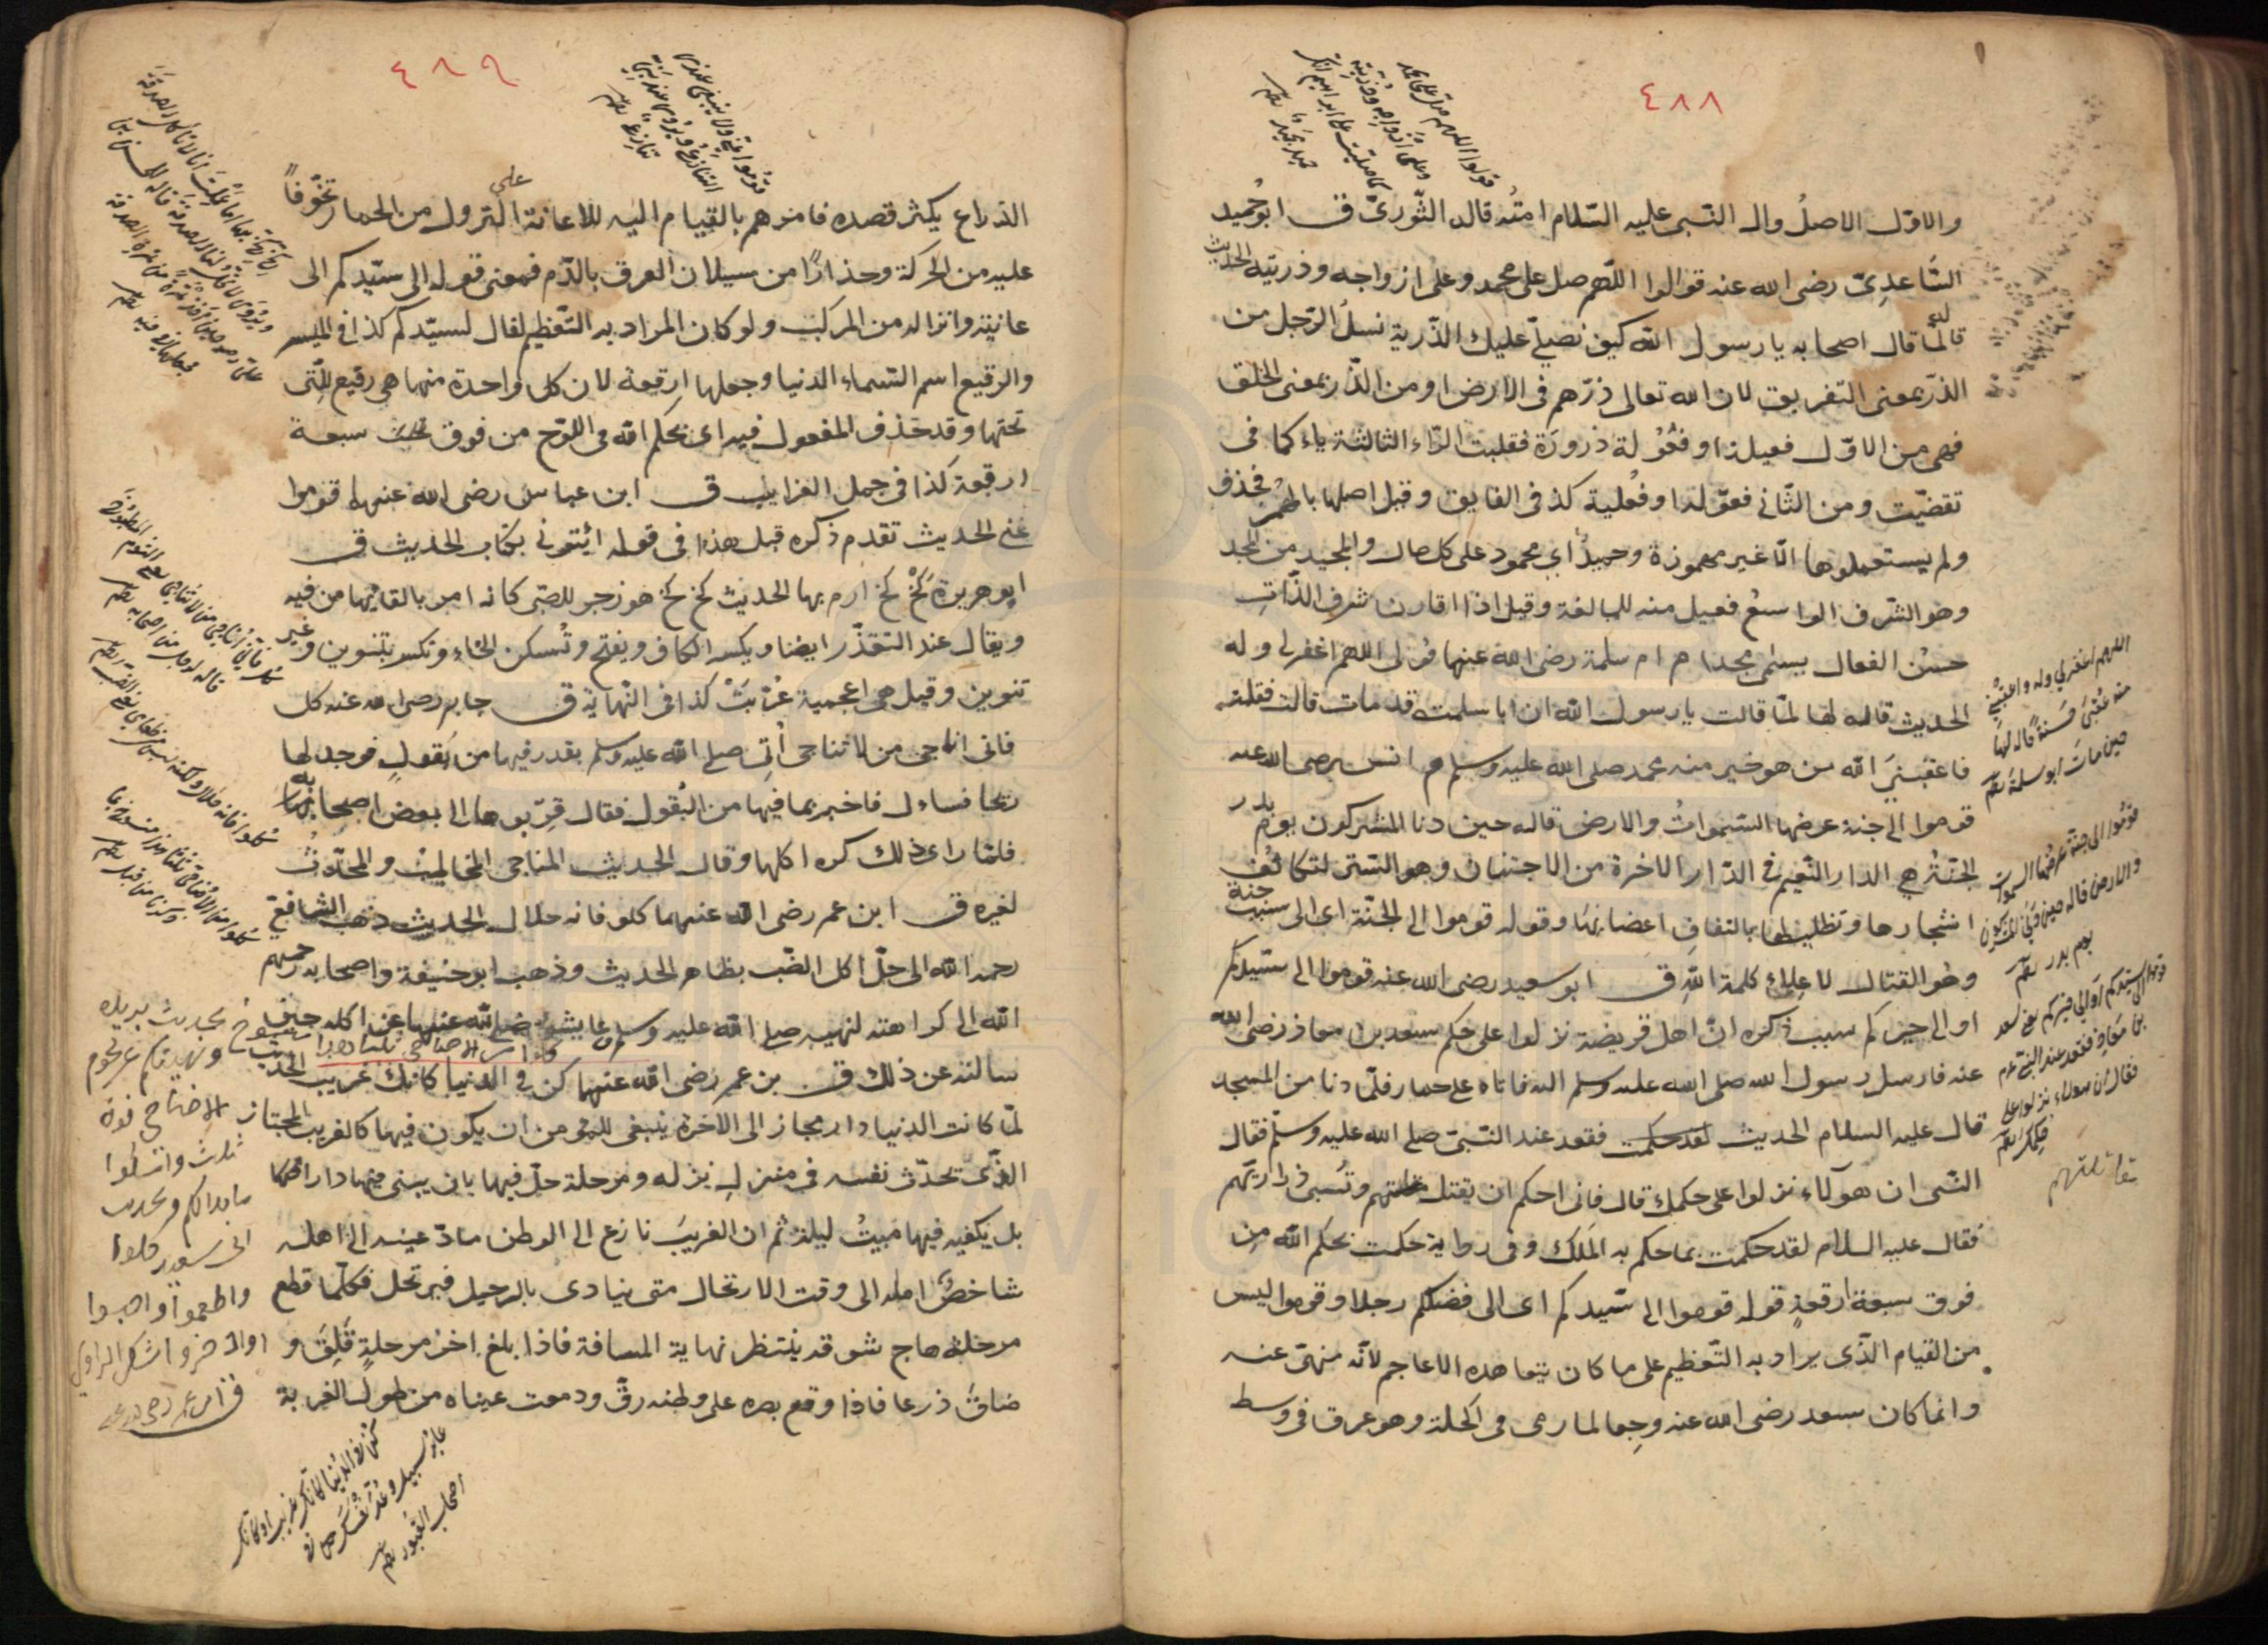 ٤٨٨
قولوا اللهم صل على محمد
وعلى أزواجه وذريته
كما صليت على ابراهيم انك
حميد مجيد
والاوّل الاصلُ وال النّبى عليه السّلام امتُه قاله الثّورىّ ق ابو حُميد
السَّاعدِىّ رضى الله عنه قولوا اللّهم صل على محمد وعلى ازواجه وذريته الحديث
قاله لمّا قال اصحابه يا رسول الله كيف نصلّى عليك الذّرية نسلُ الرّجل من
الذّر بمعنى التفريق لان الله تعالى ذرّهم فى الارض او من الذّرء بمعنى الخلق
فهى من الاوّل فعيلة او فُعّولة ذرورة فقلبت الرّاء الثالثة ياء كما فى
تقضّيت ومن الثّانى فعّولة او فُعلية كذا فى الفايق وقيل اصلها بالهمز فحذف
ولم يستعملوها الّا غير مهموزة وحميدٌ اى محمود على كل حال والمجيد من المجد
وهو الشّرف الواسعُ فعيل منه للمبالغة وقيل اذا اقارن شرف الذّاتِ
حسن الفعال يسمّى مجدا م ام سلمة رضى الله عنها قولى اللهم اغفر لى وله
الحديث قاله لها لمّا قالت يا رسول الله ان ابا سلمة قد مات قالت فقلته
فاعقبنىَ الله من هو خير منه محمد صلى الله عليه وسلم م انس رضى الله عنه
قوموا الى جنة عرضها السّمواتُ والارض قاله حين دنا المشركون يوم بدر
الجنّةُ هى الدار النّعيم فى الدّار الاخرة من الاجتنان وهو السّتر لتكاثُف
اشجارها وتظليلها بالتفاف اغصانها وقوله قوموا الى الجنّة اى الى سبب جنة
وهو القتال لاعلاء كلمة اللهِ ق ابو سعيد رضى الله عنه قوموا الى سيّدكم
او الى خيركم سبب ذكره انّ اهل قريضة نزلوا على حكم سعد بن معاذ رضى الله
عنه فارسل رسول الله صلى الله عليه وسلم اليه فاتاه على حمار فلمّا دنا من المسجد
قال عليه السلام الحديث فقعد عند النّبىّ صلى الله عليه وسلّم فقال
النّبى ان هؤلاء نزلوا على حكمك قال فانى احكم ان يقتل مقاتلتهم وتُسبى ذراريّهم
فقال عليه السلام لقد حكمت بما حكم به المَلك وفى رواية حكمت بحكم الله من
فوق سبعة ارقعةٍ قوله قوموا الى سيّدكم اى الى افضلكم رجلا وقوموا ليس
من القيام الّذى يراد به التّعظيم على ما كان يتعاهده الاعاجم لانّه منهىّ عنه
وانما كان سعد رضى الله عنه وجعا لما رمى فى اكحله وهو عرق فى وسط
اللهم اغفر لى وله واعقبنى
منه عقبى حسنة قاله لها
حين مات ابو سلمة
قوموا الى جنة عرضها السموات
والارض قاله حين دنا المشركون
يوم بدر
قوموا الى سيدكم او الى خيركم يعنى سعد
بن معاذ فقعد عند النبى عم
فقال ان هؤلاء نزلوا على
حكمك
مقاتلتهم
٤٨٩
قوموا عنى ولا ينبغى عندى
التنازع ويروى عند نبىّ
تنازع
الذراع يكثر قصده فامرهم بالقيام اليه للاعانة على النزول من الحمار تخوّفاً
عليه من الحركة وحذارًا من سيلان العرق بالدّم فمعنى قوله الى سيّدكم الى
عانته وانزاله من المركب ولو كان المراد به التّعظيم لقال لسيّدكم كذا فى الميسر
والرقيع اسم السّماء الدنيا وجعلها ارقعة لان كل واحدة منها هى رقيع للّتى
تحتها وقد حُذف المفعول فيه اى بحكم الله فى اللّوح من فوق سبعة
ارقعة كذا فى جمل الغرايب ق ابن عباس رضى الله عنهما قوموا
عنى الحديث تقدم ذكره قبل هذا فى قوله ائتونى بكتاب الحديث ق
ابو هريرة كَخْ كَخْ ارم بها الحديث كخ كخ هو زجر للصّبى كانه امر بالقائها من فيه
ويقال عند التقذّر ايضا ويكسر الكاف ويفتح وتُسكن الخاء وتكسر بتنوين وغير
تنوين وقيل هى اعجمية عُرّبَتْ كذا فى النّهاية ق جابر رضى الله عنه كل
فانى اناجى من لا تناجى اُتِى صلى الله عليه وسلم بقدر فيها من بُقول فوجد لها
ريحا فساءل فاخبر بما فيها من البُقول فقال قرّبوها الى بعض اصحابه
فلمّا راى ذلك كره اكلها وقال الحديث المناجى المخاطِب والمحدّثُ
لغيره ق ابن عمر رضى الله عنهما كلوا فانه حلال الحديث ذهب الشافعىّ
رحمه الله الى حلّ اكل الضّب بظاهر الحديث وذهب ابو حنيفة واصحابه رحمهم
الله الى كراهته لنهيه صلى الله عليه وسلم عايشة رضى الله عنها عن اكله حين
سالته عن ذلك ق بن عمر رضى الله عنهما كن فى الدنيا كانك غريب الحديث
لمّا كانت الدنيا دار مجاز الى الاخرة ينبغى للمؤمن ان يكون فيها كالغريب المجتاز
الذّى تحدّث نفسه فى منزل نزله ومرحلة حلّ فيها بان يبنى فيها دارا
بل يكفيه فيها مبيتُ ليلة ثم ان الغريبَ نازع الى الوطن مادّ عينه الى اهله
شاخصٌ امله الى وقت الارتحال متى ينادى بالرحيل فيرتحل فكلّما قطع
مرحلة هاج شوقه ينتظر نهاية المسافة فاذا بلغ اخر مرحلةٍ قَلِقَ و
ضاق ذرعا فاذا وقع بصره على وطنه رقّ ودمعت عيناه من طول الغربة
كلوا من الاضاحى ثلثا
بحديث بريدة
ونهيتكم عن لحوم
الاضاحى فوق
ثلاث
ما بدا لكم وبحديث
ابى سعيد كلوا
واطعموا واحبسوا
او ادخروا شك الراوى
كن فى الدنيا كانك غريب او كانك
عابر سبيل وعدّ نفسك من
اصحاب القبور